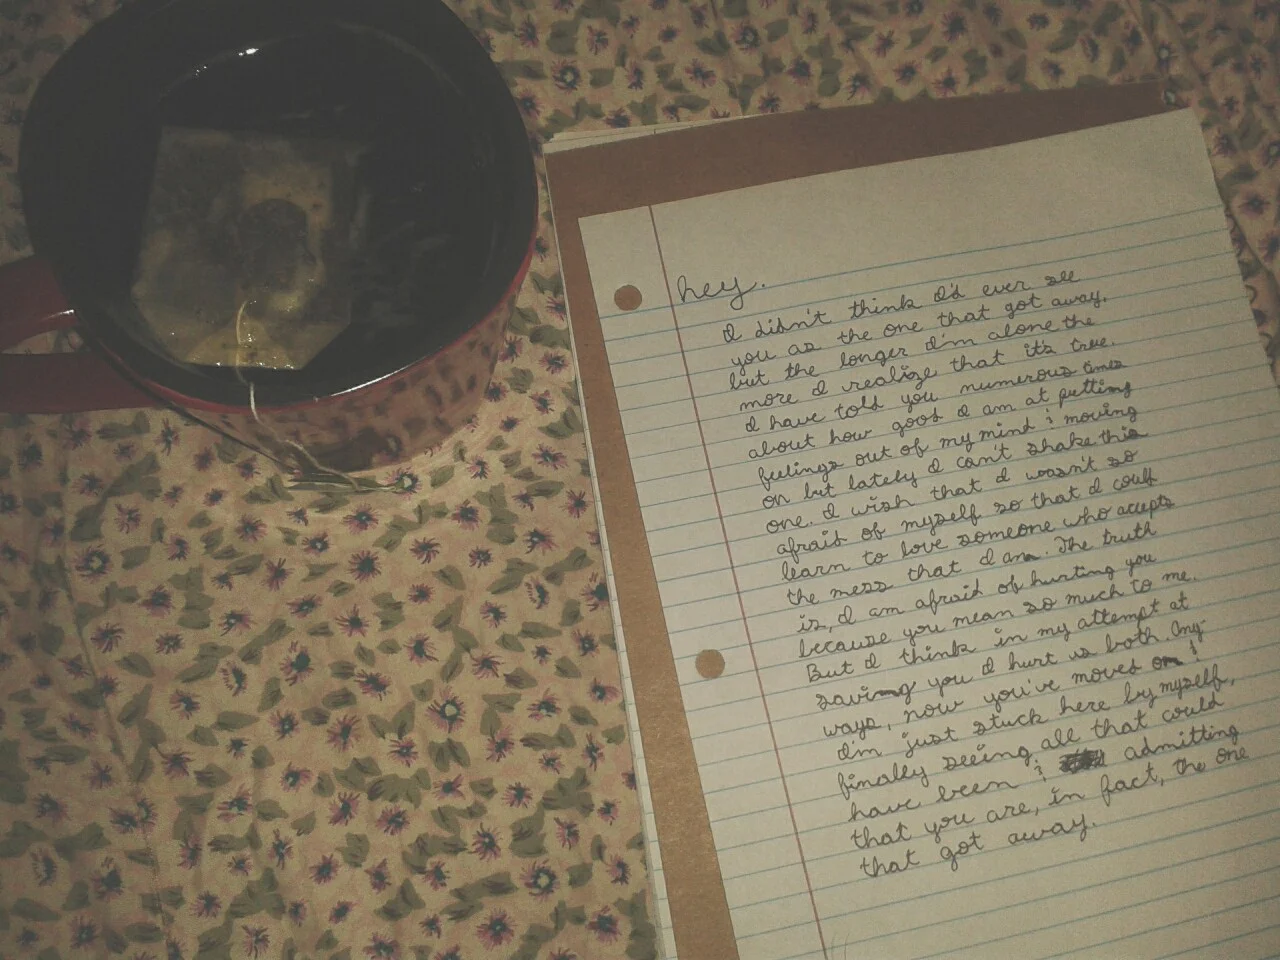 hey.
I didn't think I'd ever see
you as the one that got away.
but the longer I'm alone the
more I realize that it's true.
I have told you numerous times
about how good I am at putting
feelings out of my mind & moving
on but lately I can't shake this
one. I wish that I wasn't so
afraid of myself so that I could
learn to love someone who accepts
the mess that I am. The truth
is, I am afraid of hurting you
because you mean so much to me.
But I think in my attempt at
saving you I hurt us both. Any-
ways, now you've moved on &
I'm just stuck here by myself,
finally seeing all that could
have been & admitting
that you are, in fact, the one
that got away.